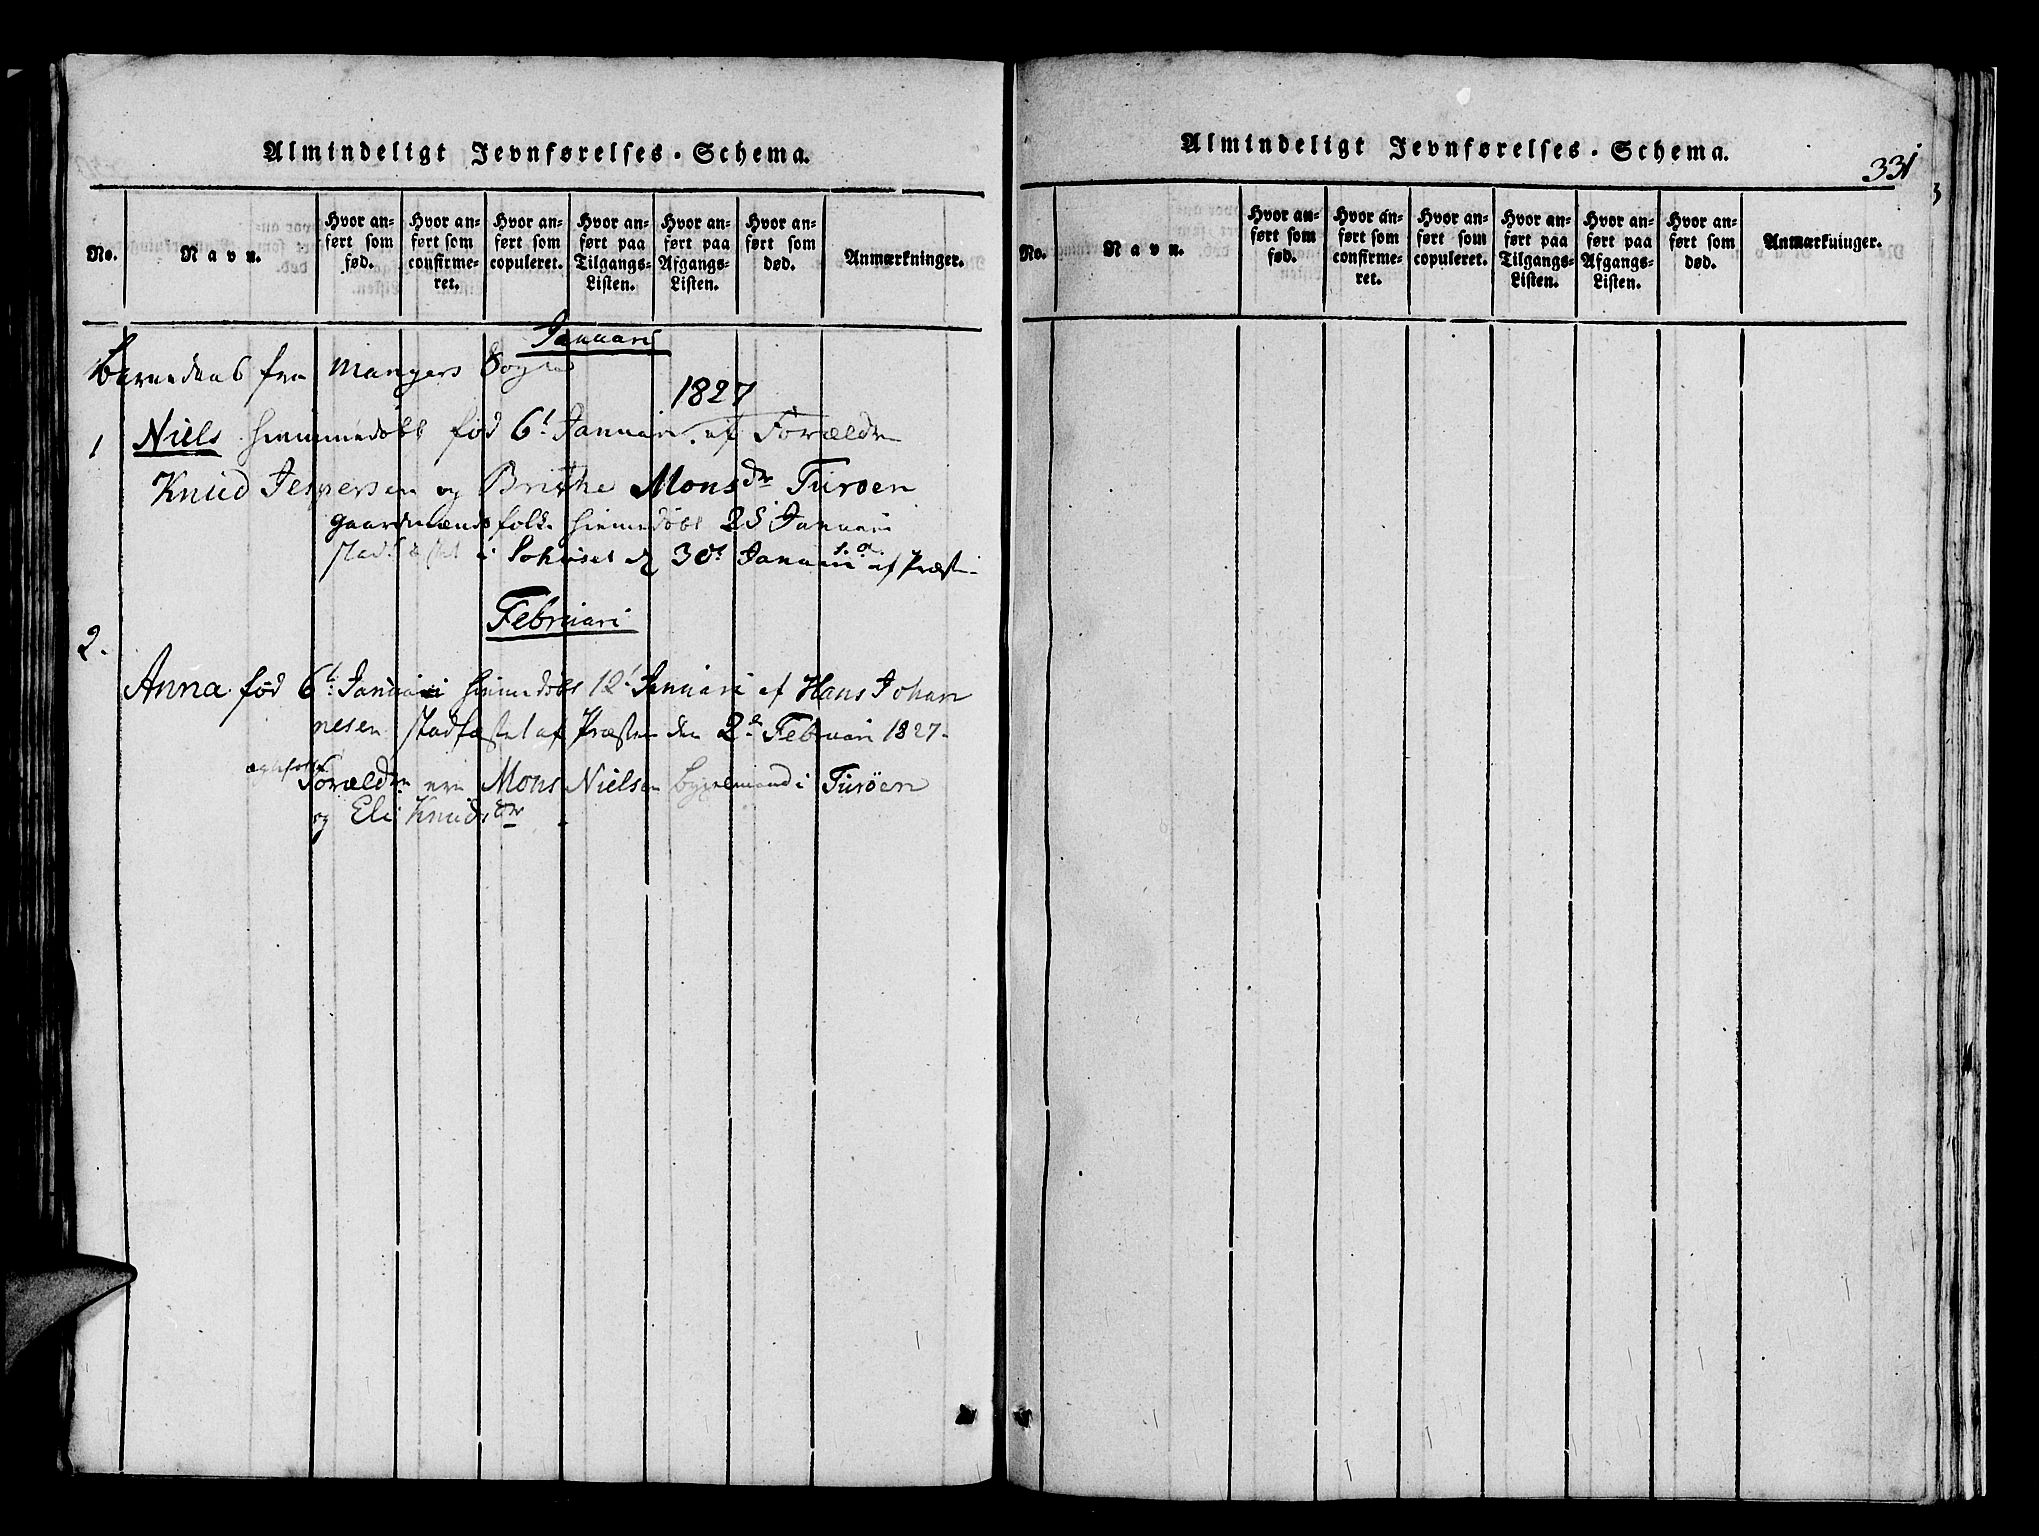 Almindeligt Jevnførelses-Schema.
No.
Navn.
Hvor an-
ført som
fød.
Hvor an-
ført som
confirme-
ret.
Hvor an-
ført som
copuleret.
Hvor an-
ført paa
Tilgangs-
Listen.
Hvor an-
ført paa
Afgangs-
Listen.
Hvor an-
ført som
død.
Anmærkninger.
Januari
Barnedaab fra Mangers Sogn
1827
1 Niels hiemmedøbt fød 6t Januari af Forældre
Knud Jespersen og Brithe Monsdr Turøen
Gaardmands folk hiemedøbt 25 Januari
i 30t Januari af Præsten
Februari
2.
Anna fød 6t Januari hiemedøbt 12t Januari af Hans Johan
nesen stadfæstet af Præsten den 2den Februari 1827.
Forældre ere Mons Nielsen i Turøen
og Eli Knudsdr
Almindeligt Jevnførelses-Schema.
331
No.
Navn.
Hvor an-
ført som
fød.
Hvor an-
ført som
confirme-
ret.
Hvor an-
ført som
copuleret.
Hvor an-
ført paa
Tilgangs-
Listen.
Hvor an-
ført paa
Afgangs-
Listen.
Hvor an-
ført som
død.
Anmærkninger.